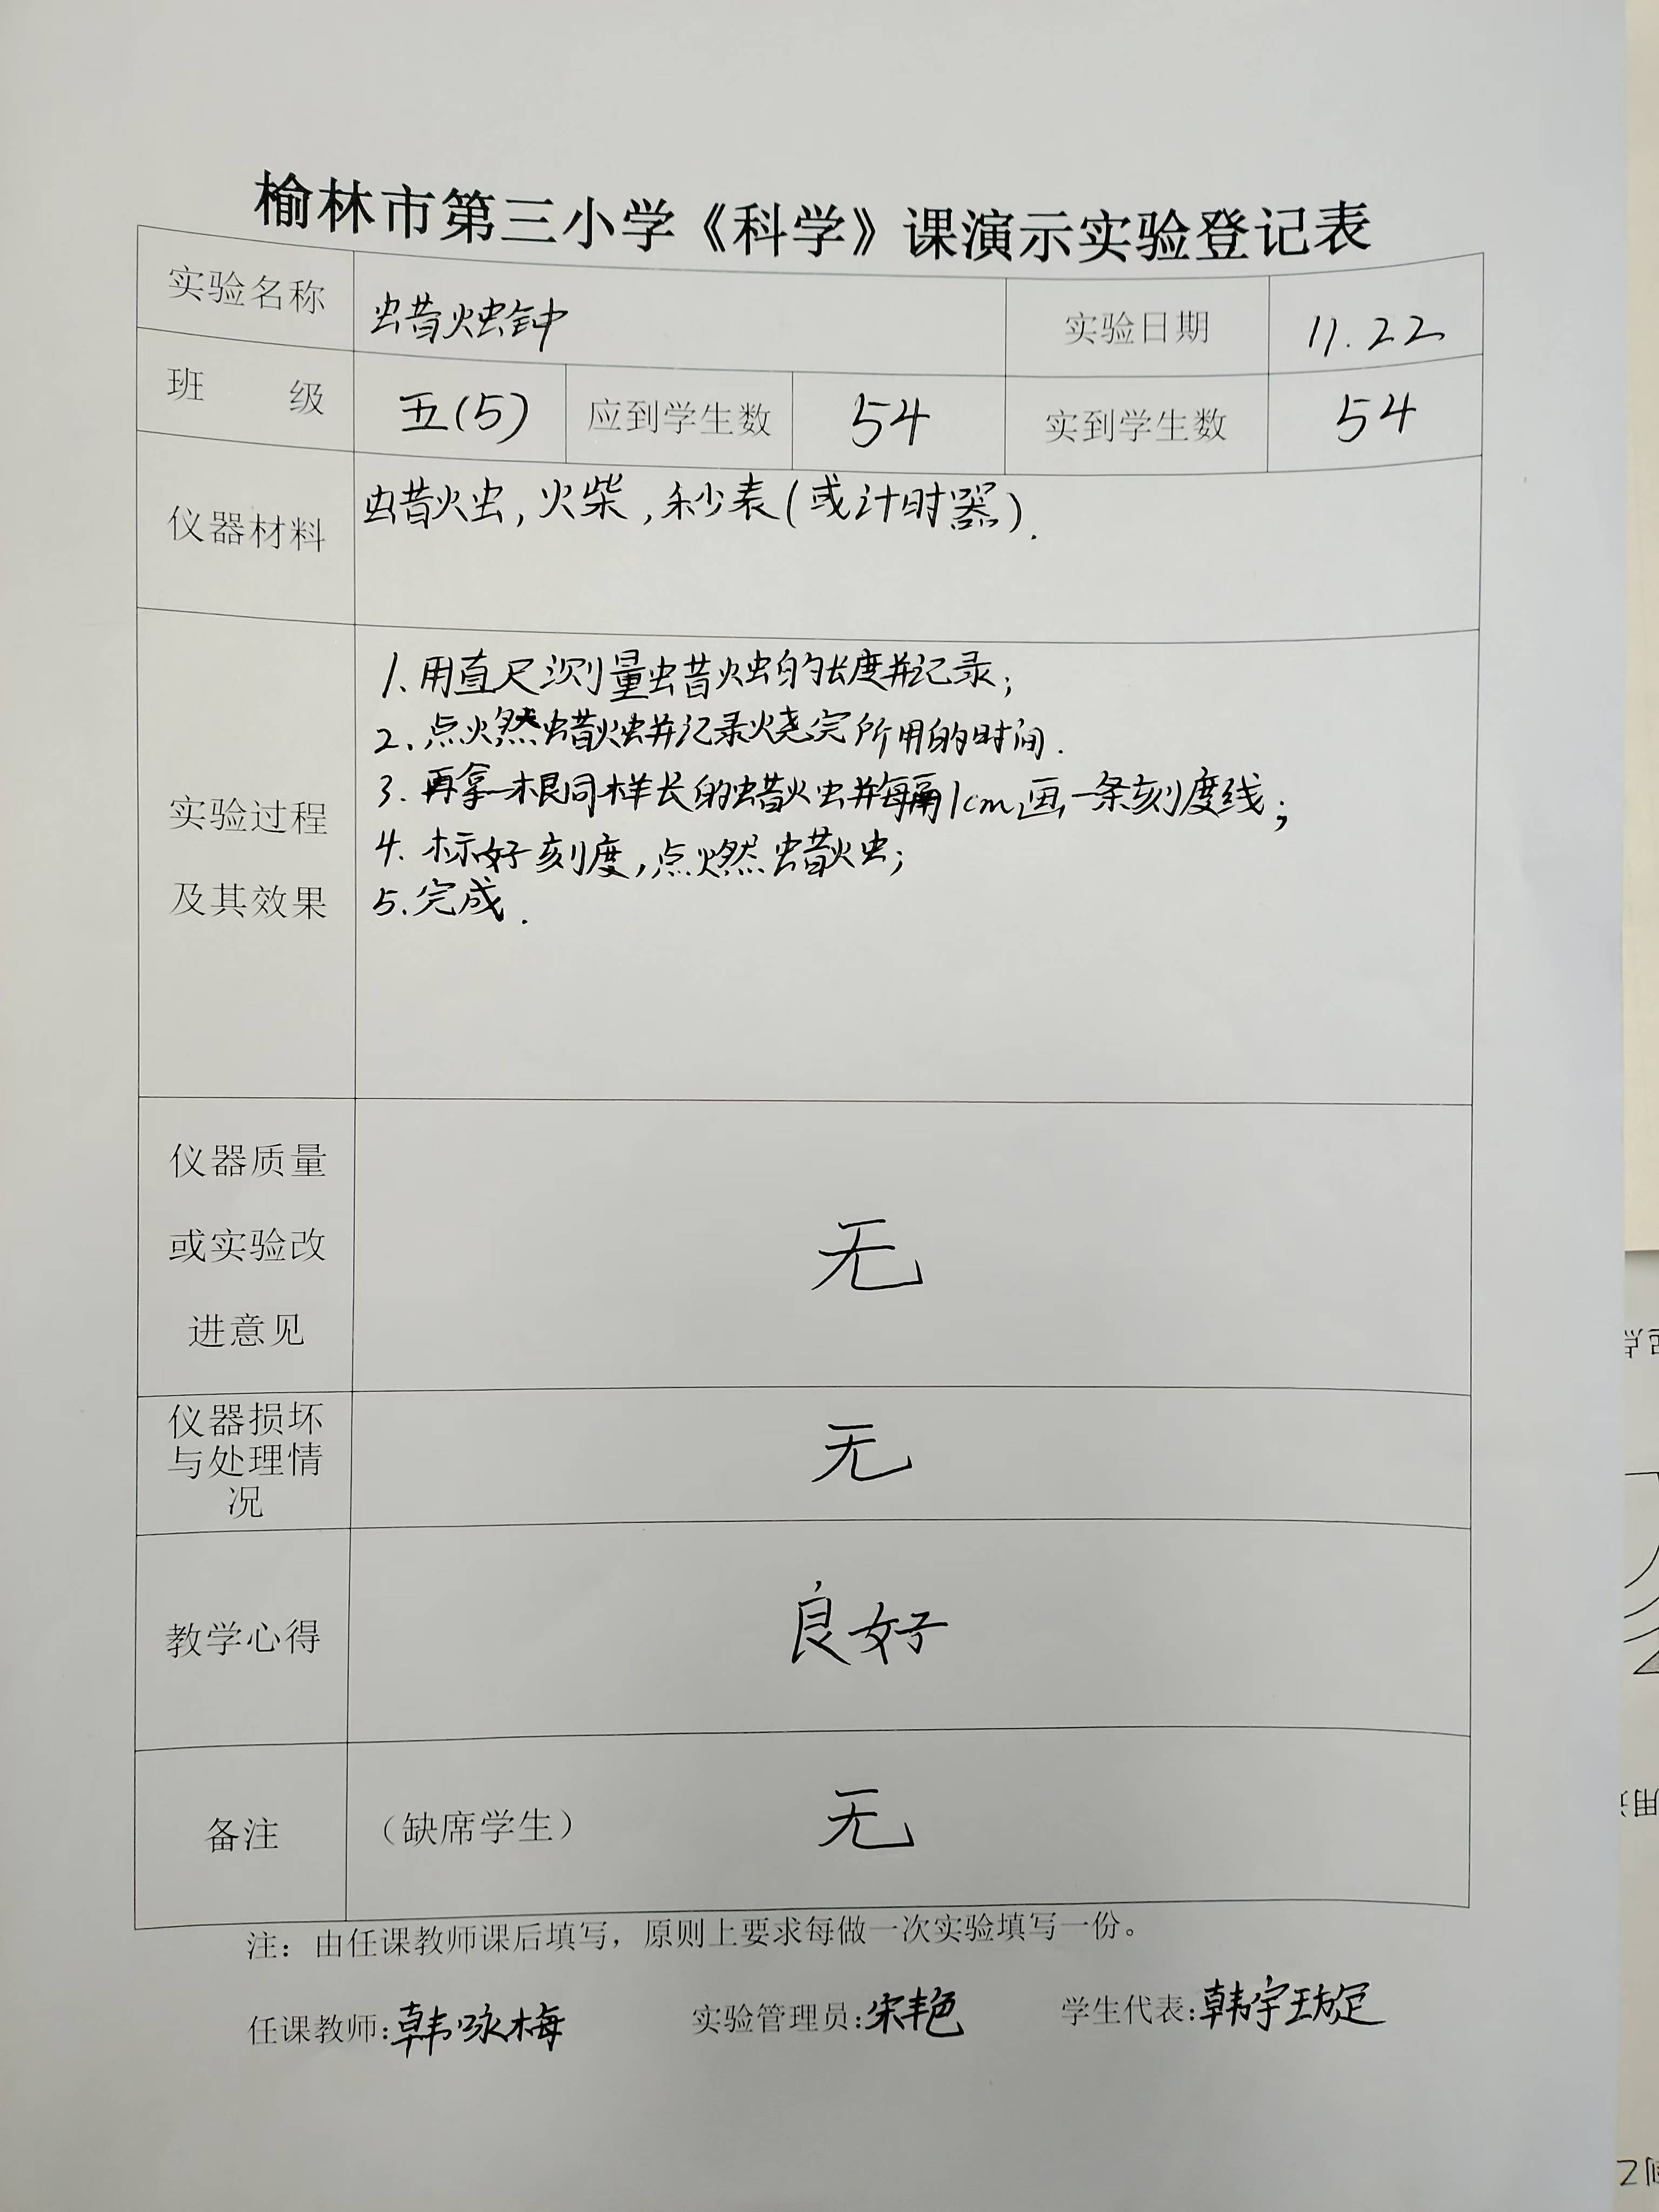 榆林市第三小学《科学》课演示实验登记表
实验名称 蜡烛钟 实验日期 11.22
班 级 五(5) 应到学生数 54 实到学生数 54
仪器材料 蜡烛,火柴,秒表(或计时器).
实验过程
及其效果
1.用直尺测量蜡烛的长度并记录;
2.点燃蜡烛并记录烧完所用的时间.
3.再拿一根同样长的蜡烛并每隔1cm画一条刻度线;
4.标好刻度,点燃蜡烛;
5.完成.
仪器质量
或实验改
进意见
无
仪器损坏
与处理情
况
无
教学心得 良好
备注 (缺席学生) 无
注:由任课教师课后填写,原则上要求每做一次实验填写一份。
任课教师:韩咏梅 实验管理员:宋艳 学生代表:韩宇璇